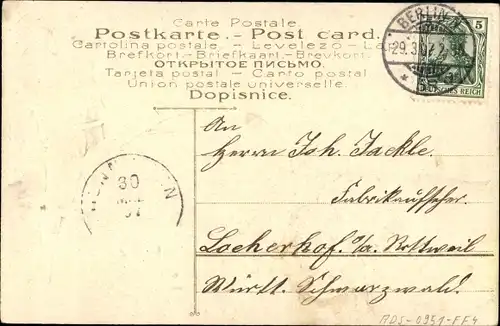 Carte Postale
Postkarte. - Post card.
Cartolina postale. - Levelezo-La
Brefkort.-Briefkaart.-Brevkort.
ОТКРЫТОЕ ПИСЬМО.
Tarjeta postal - Carto postal
Union postale universelle.
Dopisnice.
BERLIN N
29.3.07
5
DEUTSCHES REICH
30
07
An
Herrn Joh. Jackle.
Fabrikaufseher.
Locherhof. o/a. Rottweil
Württ. Schwarzwald.
ADS-0951-FF4